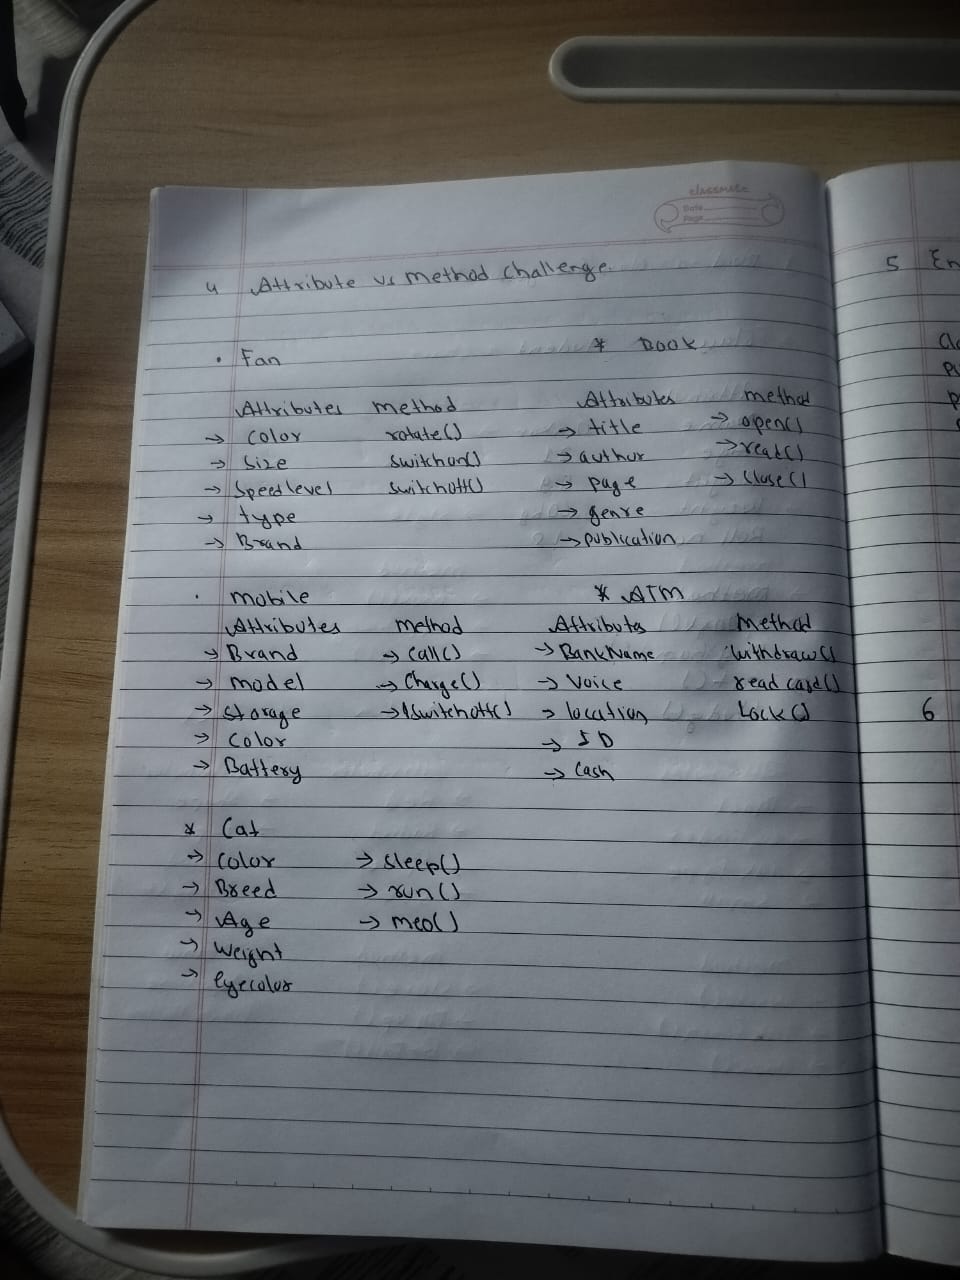 classmate
Date
Page
4 Attribute vs method challenge.
• Fan
Attributes method
→ color rotate()
→ Size switchon()
→ Speed level switchoff()
→ type
→ Brand
* Book
Attributes method
→ title → open()
→ author → read()
→ page → close()
→ genre
→ publication
• mobile
Attributes method
→ Brand → call()
→ model → Charge()
→ storage → switchoff()
→ color
→ Battery
* ATM
Attributes Method
→ BankName withdraw()
→ Voice read card()
→ location Lock()
→ ID
→ Cash
* Cat
→ color → sleep()
→ Breed → run()
→ Age → meo()
→ weight
→ eyecolor
5 En
6